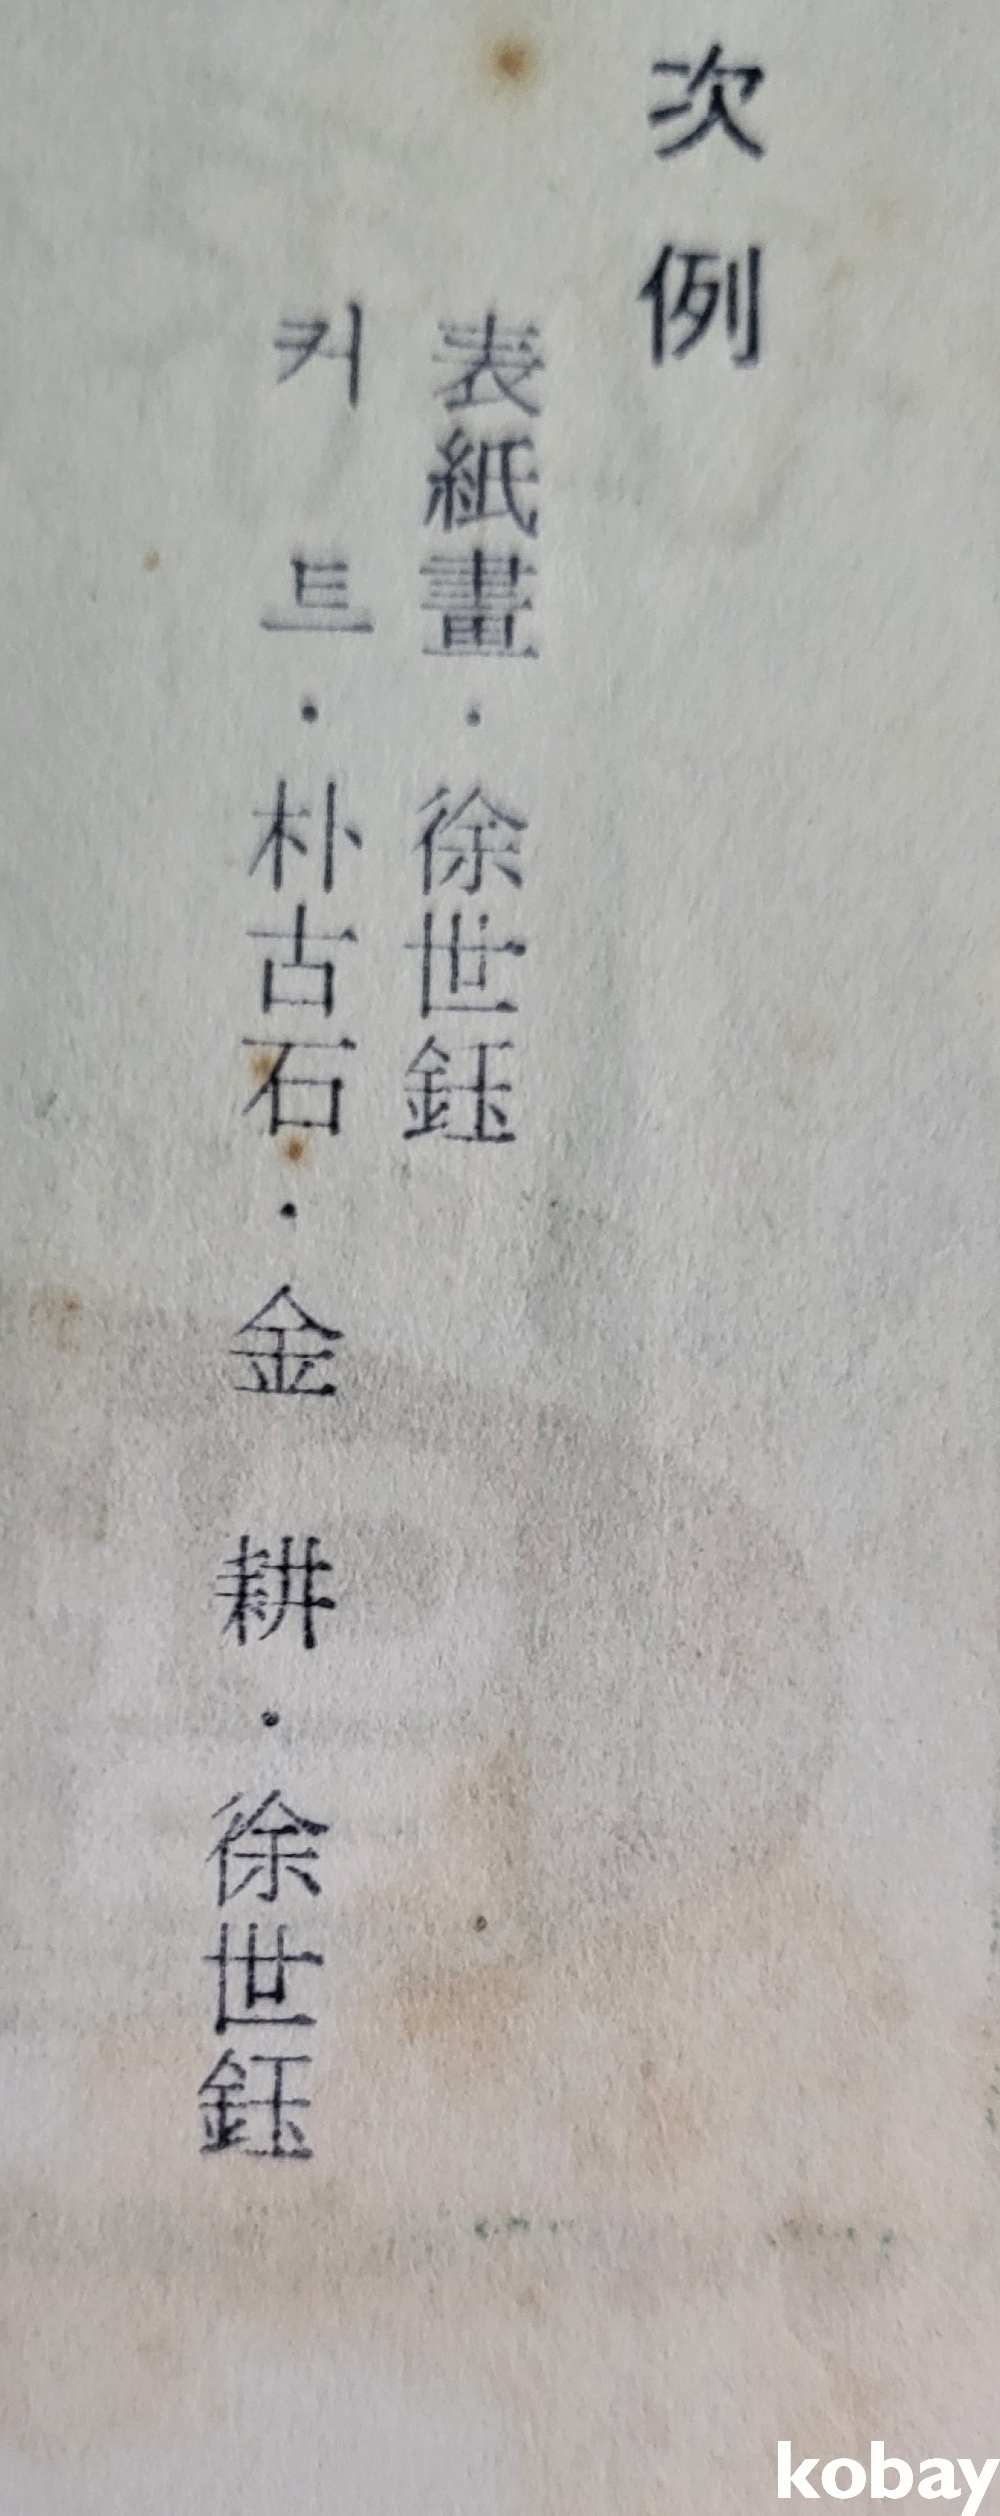 次例
表紙畫·徐世鈺
커트·朴古石·金 耕·徐世鈺
kobay